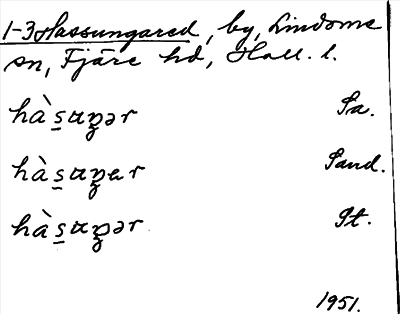 1-3 Hassungared, by, Lindome
sn, Fjäre hd, Hall. l.
hàs̲ɯŋ̢ər Sa.
hàs̲ɯŋ̢ɐr Sand.
hàs̲ɯŋ̢ər St.
1951.